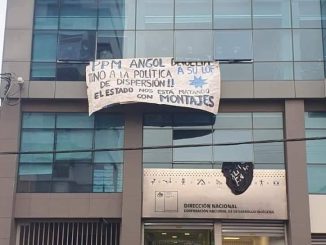 PPM ANGOL DEVUELTA
¡NO A LA POLÍTICA A SU LOF
DE DISPERSIÓN!!
EL ESTADO NOS ESTA MATANDO
CON MONTAJES
DIRECCIÓN NACIONAL
CORPORACIÓN NACIONAL DE DESARROLLO INDÍGENA